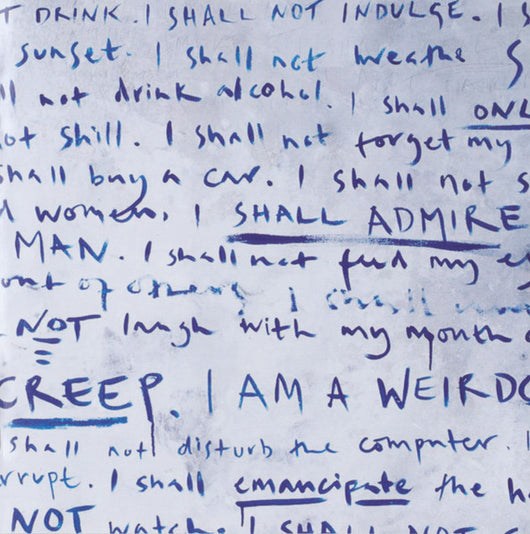 T DRINK. I SHALL NOT INDULGE. I S
sunset. I shall not breathe S
ll not drink alcohol. I shall ONL
ot shill. I shall not forget my
shall buy a car. I shall not s
d women. I SHALL ADMIRE
MAN. I shall not feed my e
out of others I shall
NOT laugh with my mouth
CREEP. I AM A WEIRDO
shall not disturb the computer. I
rrupt. I shall emancipate the h
NOT watch. I SHALL NOT